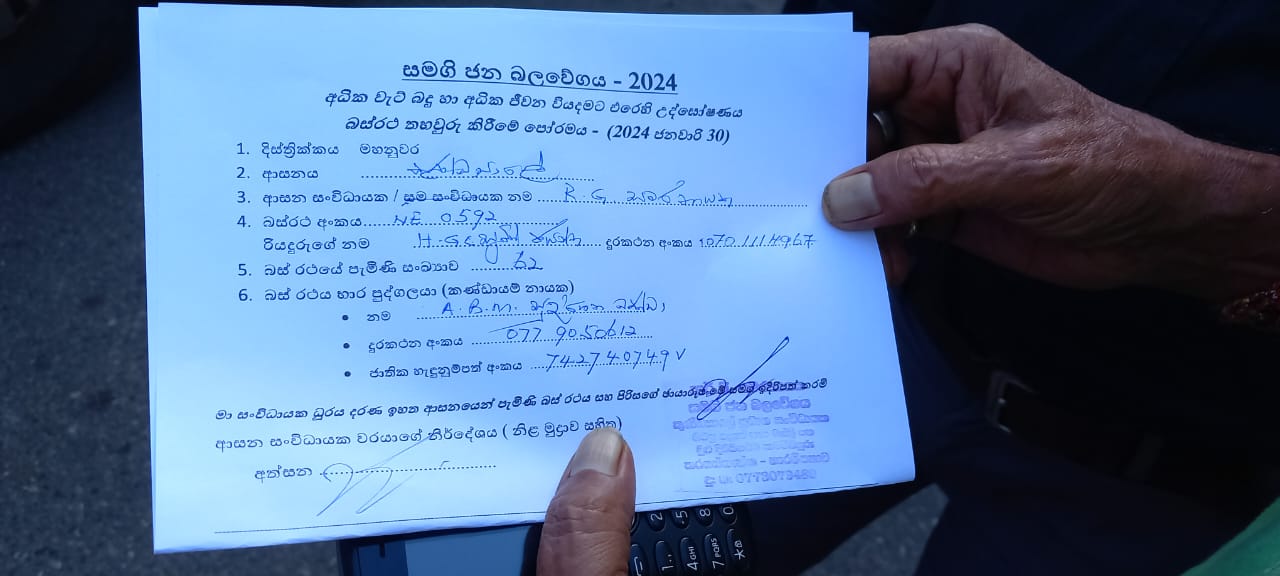 සමගි ජන බලවේගය - 2024
අධික වැට් බදු හා අධික ජීවන වියදමට එරෙහි උද්ඝෝෂණය
බස්රථ තහවුරු කිරීමේ පෝරමය - (2024 ජනවාරි 30)
1. දිස්ත්‍රික්කය මහනුවර
2. ආසනය
3. ආසන සංවිධායක / සම සංවිධායක නම R. G.
4. බස්රථ අංකය NE 0592
රියදුරුගේ නම H.G. දුරකථන අංකය 0701114967
5. බස් රථයේ පැමිණි සංඛ්‍යාව 62
6. බස් රථය භාර පුද්ගලයා (කණ්ඩායම් නායක)
• නම A.B.M. බණ්ඩා
• දුරකථන අංකය 077 9050612
• ජාතික හැඳුනුම්පත් අංකය 742740749 V
මා සංවිධායක ධුරය දරණ ඉහත ආසනයෙන් පැමිණි බස් රථය සහ පිරිසගේ ඡායාරූප මේ සමග ඉදිරිපත් කරමි
සමගි ජන බලවේගය
ආසන සංවිධායක වරයාගේ නිර්දේශය ( නිළ මුද්‍රාව සහිත)
අත්සන
2
5
8
0
1
4 GHI
7 PQRS
*